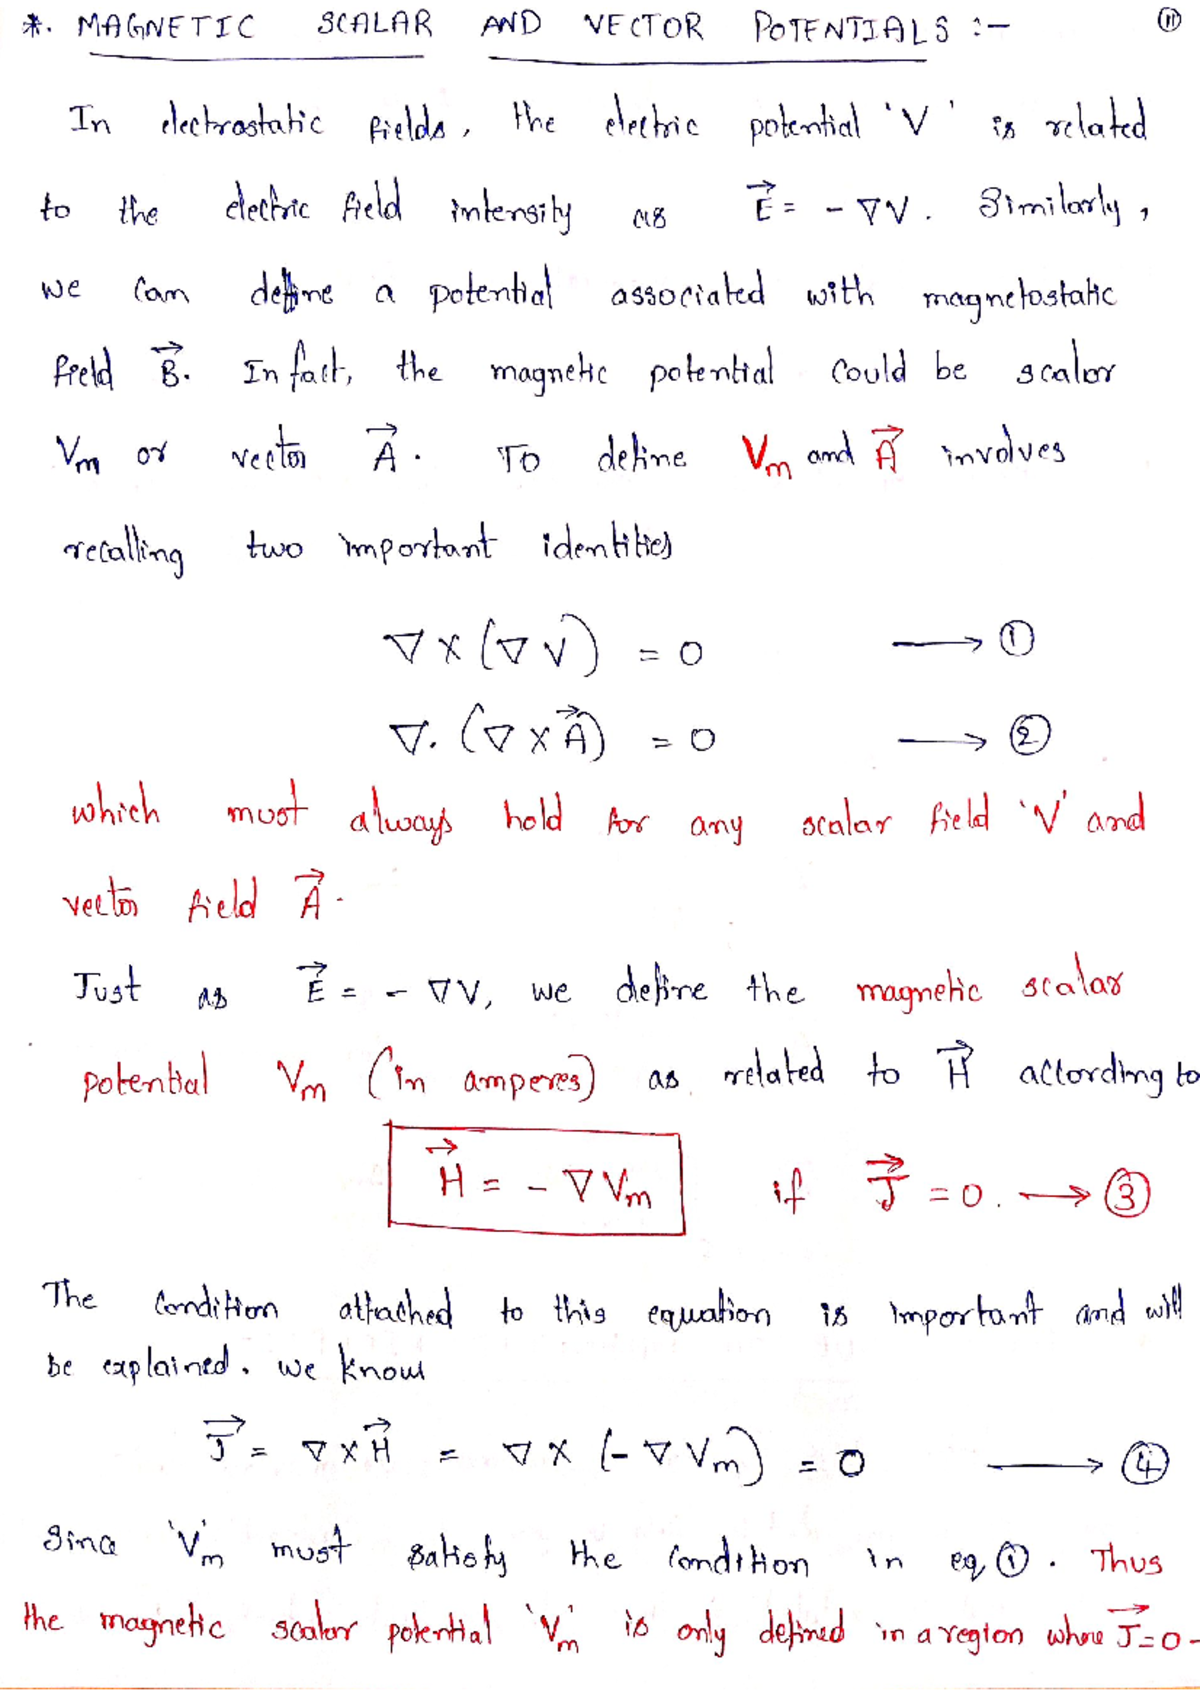 *. MAGNETIC SCALAR AND VECTOR POTENTIALS :- ⑪
In electrostatic fields, the electric potential 'V' is related
to the electric field intensity as E⃗ = - ∇V. Similarly,
we can define a potential associated with magnetostatic
field B⃗. In fact, the magnetic potential could be scalar
Vm or vector A⃗. To define Vm and A⃗ involves
recalling two important identities
∇ × (∇V) = 0 ⟶ ①
∇. (∇ × A⃗) = 0 ⟶ ②
which must always hold for any scalar field 'V' and
vector field A⃗.
Just as E⃗ = - ∇V, we define the magnetic scalar
potential Vm (in amperes) as related to H⃗ according to
H⃗ = - ∇Vm if J⃗ = 0. ⟶ ③
The condition attached to this equation is important and will
be explained. we know
J⃗ = ∇ × H⃗ = ∇ × (- ∇Vm) = 0 ⟶ ④
Since 'Vm' must satisfy the condition in eq ①. Thus
the magnetic scalar potential 'Vm' is only defined in a region where J⃗ = 0 -